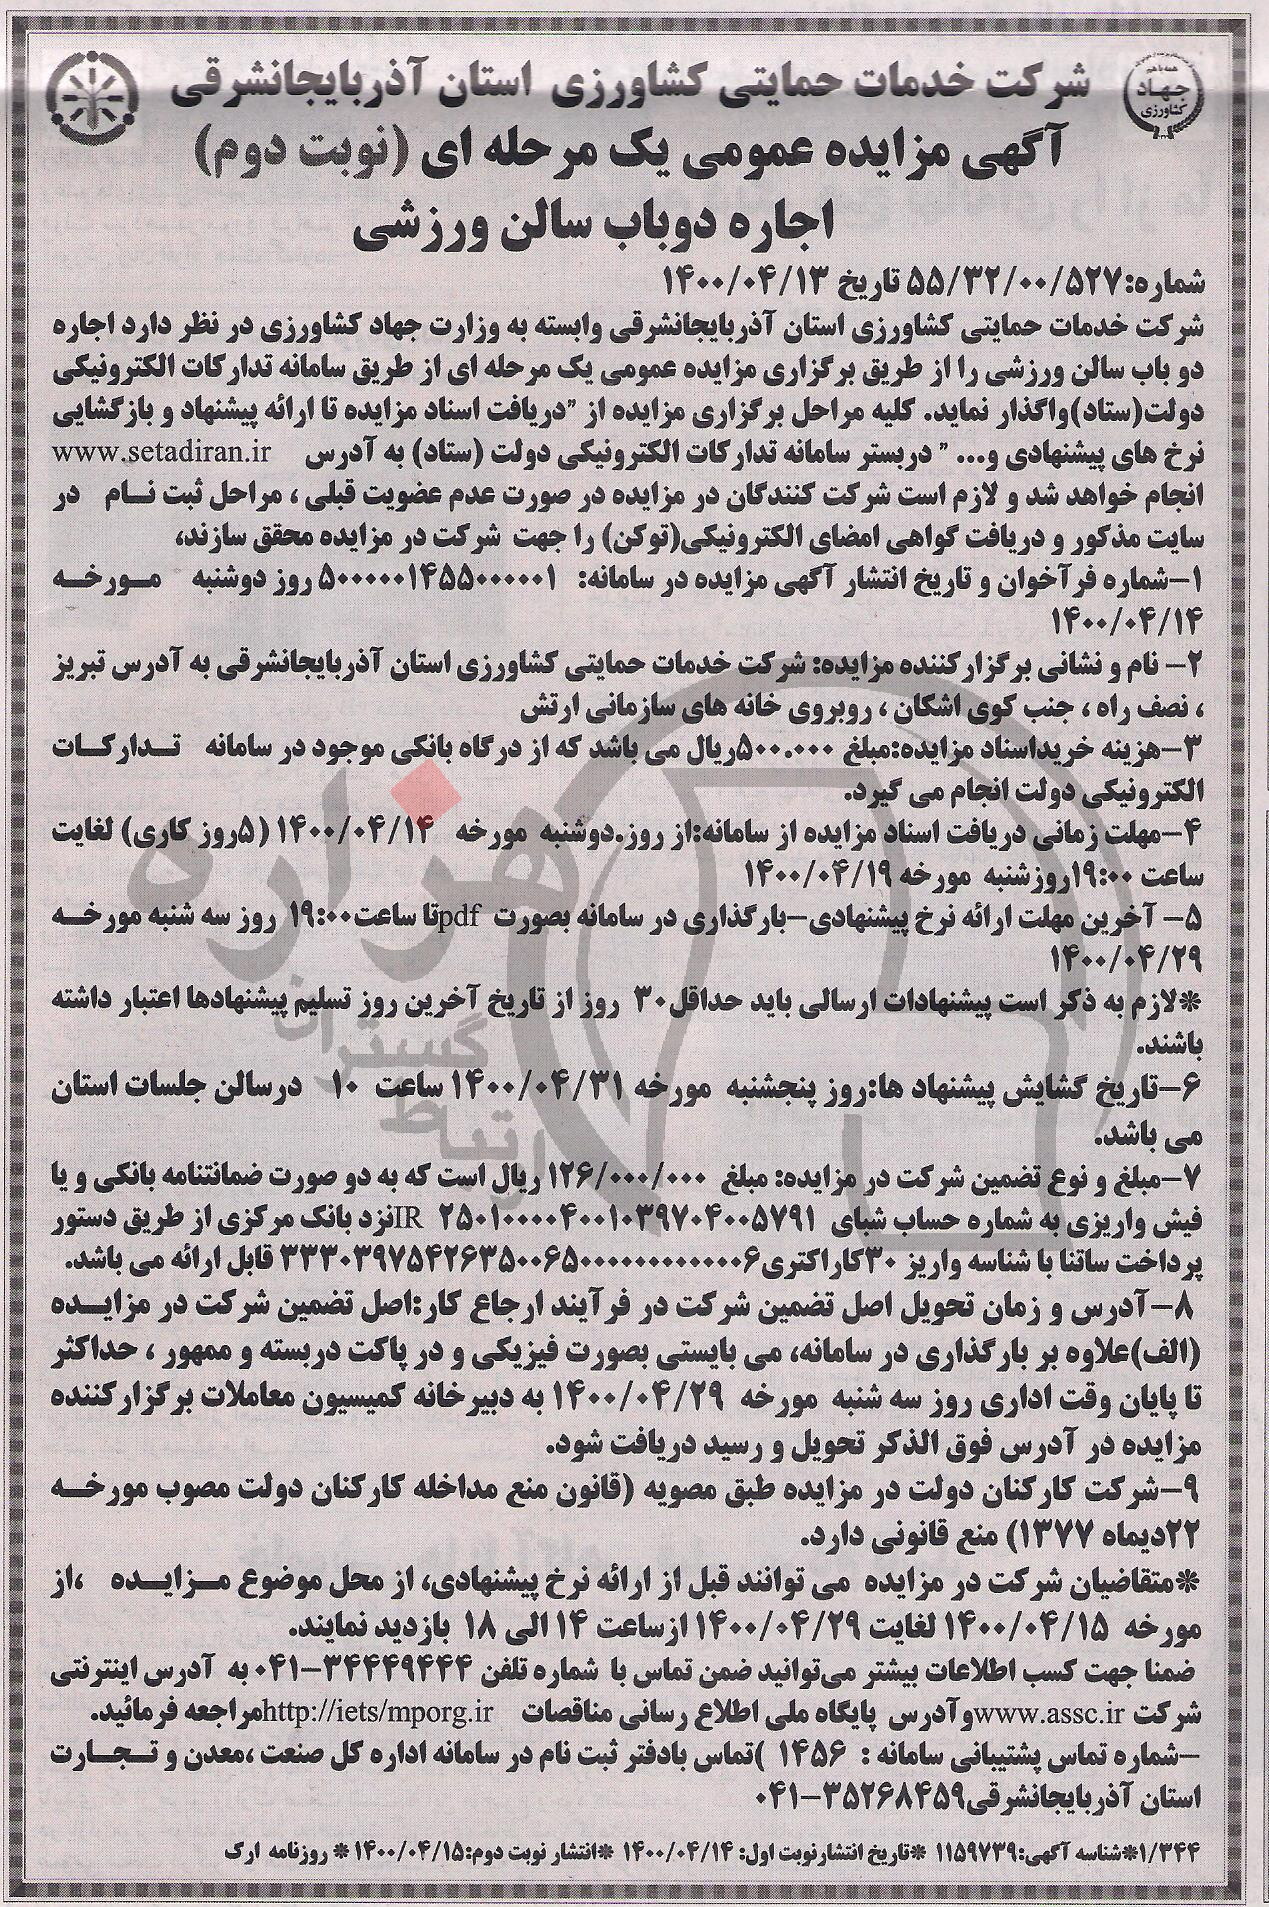 همه با هم
جهاد
کشاورزی
شرکت خدمات حمایتی کشاورزی استان آذربایجانشرقی
آگهی مزایده عمومی یک مرحله ای (نوبت دوم)
اجاره دوباب سالن ورزشی
شماره:۵۵/۳۲/۰۰/۵۲۷ تاریخ ۱۴۰۰/۰۴/۱۳
شرکت خدمات حمایتی کشاورزی استان آذربایجانشرقی وابسته به وزارت جهاد کشاورزی در نظر دارد اجاره
دو باب سالن ورزشی را از طریق برگزاری مزایده عمومی یک مرحله ای از طریق سامانه تدارکات الکترونیکی
دولت(ستاد)واگذار نماید. کلیه مراحل برگزاری مزایده از "دریافت اسناد مزایده تا ارائه پیشنهاد و بازگشایی
نرخ های پیشنهادی و... " دربستر سامانه تدارکات الکترونیکی دولت (ستاد) به آدرس www.setadiran.ir
انجام خواهد شد و لازم است شرکت کنندگان در مزایده در صورت عدم عضویت قبلی ، مراحل ثبت نام در
سایت مذکور و دریافت گواهی امضای الکترونیکی(توکن) را جهت شرکت در مزایده محقق سازند،
۱-شماره فرآخوان و تاریخ انتشار آگهی مزایده در سامانه: ۵۰۰۰۰۰۱۴۵۵۰۰۰۰۰۱ روز دوشنبه مورخه
۱۴۰۰/۰۴/۱۴
۲- نام و نشانی برگزارکننده مزایده: شرکت خدمات حمایتی کشاورزی استان آذربایجانشرقی به آدرس تبریز
، نصف راه ، جنب کوی اشکان ، روبروی خانه های سازمانی ارتش
۳-هزینه خریداسناد مزایده:مبلغ ۵۰۰.۰۰۰ریال می باشد که از درگاه بانکی موجود در سامانه تدارکات
الکترونیکی دولت انجام می گیرد.
۴-مهلت زمانی دریافت اسناد مزایده از سامانه:از روز.دوشنبه مورخه ۱۴۰۰/۰۴/۱۴ (۵روز کاری) لغایت
ساعت ۱۹:۰۰روزشنبه مورخه ۱۴۰۰/۰۴/۱۹
۵- آخرین مهلت ارائه نرخ پیشنهادی-بارگذاری در سامانه بصورت pdfتا ساعت۱۹:۰۰ روز سه شنبه مورخه
۱۴۰۰/۰۴/۲۹
*لازم به ذکر است پیشنهادات ارسالی باید حداقل۳۰ روز از تاریخ آخرین روز تسلیم پیشنهادها اعتبار داشته
باشند.
۶-تاریخ گشایش پیشنهاد ها:روز پنجشنبه مورخه ۱۴۰۰/۰۴/۳۱ ساعت ۱۰ درسالن جلسات استان
می باشد.
۷-مبلغ و نوع تضمین شرکت در مزایده: مبلغ ۱۲۶/۰۰۰/۰۰۰ ریال است که به دو صورت ضمانتنامه بانکی و یا
فیش واریزی به شماره حساب شبای IR ۲۵۰۱۰۰۰۰۴۰۰۱۰۳۹۷۰۴۰۰۵۷۹۱نزد بانک مرکزی از طریق دستور
پرداخت ساتنا با شناسه واریز ۳۰کاراکتری قابل ارائه می باشد.
۸-آدرس و زمان تحویل اصل تضمین شرکت در فرآیند ارجاع کار:اصل تضمین شرکت در مزایده
(الف)علاوه بر بارگذاری در سامانه، می بایستی بصورت فیزیکی و در پاکت دربسته و ممهور ، حداکثر
تا پایان وقت اداری روز سه شنبه مورخه ۱۴۰۰/۰۴/۲۹ به دبیرخانه کمیسیون معاملات برگزارکننده
مزایده در آدرس فوق الذکر تحویل و رسید دریافت شود.
۹-شرکت کارکنان دولت در مزایده طبق مصوبه (قانون منع مداخله کارکنان دولت مصوب مورخه
۲۲دیماه ۱۳۷۷) منع قانونی دارد.
*متقاضیان شرکت در مزایده می توانند قبل از ارائه نرخ پیشنهادی، از محل موضوع مزایده ،از
مورخه ۱۴۰۰/۰۴/۱۵ لغایت ۱۴۰۰/۰۴/۲۹ ازساعت ۱۴ الی ۱۸ بازدید نمایند.
ضمنا جهت کسب اطلاعات بیشتر می‌توانید ضمن تماس با شماره تلفن ۳۴۴۴۹۴۴۴-۰۴۱ به آدرس اینترنتی
شرکت www.assc.irوآدرس پایگاه ملی اطلاع رسانی مناقصات http://iets/mporg.irمراجعه فرمائید.
-شماره تماس پشتیبانی سامانه : ۱۴۵۶ )تماس بادفتر ثبت نام در سامانه اداره کل صنعت ،معدن و تجارت
استان آذربایجانشرقی۳۵۲۶۸۴۵۹-۰۴۱
۱/۳۴۴*شناسه آگهی:۱۱۵۹۷۳۹ *تاریخ انتشارنوبت اول: ۱۴۰۰/۰۴/۱۴ *انتشار نوبت دوم:۱۴۰۰/۰۴/۱۵ * روزنامه ارک
هزاره
گستران
ارتباط